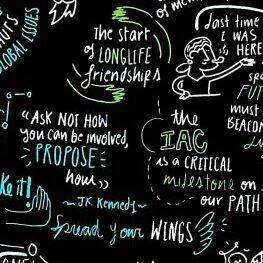 GLOBAL ISSUES
The start
of LONGLIFE
friendships
last time
I WAS
HERE
FUT
must
BEACON
"ASK NOT HOW
you can be involved,
PROPOSE
how"
~ JK Kennedy ~
the
IAC
is a CRITICAL
milestone on
our PATH
ke it!
Spread your WINGS